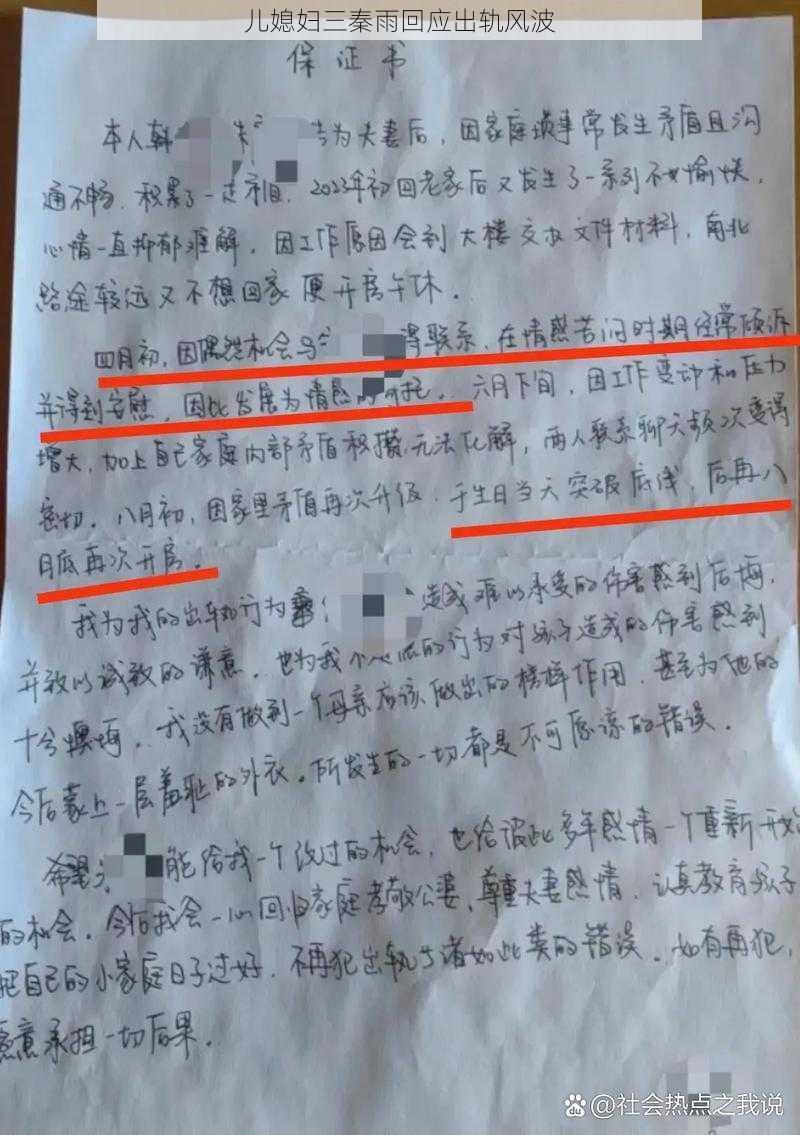 儿媳妇三秦雨回应出轨风波
保证书
本人韩 为夫妻后，因家庭琐事常发生矛盾且沟
通不畅，积累了一定矛盾，2023年初回老家后又发生了一系列不愉快，
心情一直抑郁难解，因工作原因会到大楼交友文件材料，南北
路途较远又不想回家便开房午休。
四月初，因偶然机会与 得联系，在情感苦闷时期经常倾诉
并得到安慰，因此发展为情感的寄托。六月下旬，因工作变动和压力
增大，加上自己家庭内部矛盾积攒无法化解，两人联系聊天频次变得
密切。八月初，因家里矛盾再次升级，于生日当天突破底线，后再八
月底再次开房。
我为我的出轨行为 造成难以承受的伤害感到后悔，
并致以诚致的谦意，也为我 的行为对孩子造成的伤害感到
十分懊悔，我没有做到一个母亲应该做出的榜样作用，甚至为他的
今后蒙上一层羞耻的外衣。所发生的一切都是不可原谅的错误。
希望 能给我一个改过的机会，也给彼此多年感情一个重新开始
的机会。今后我会一心回归家庭孝敬公婆，尊重夫妻感情，认真教育孩子
把自己的小家庭日子过好，不再犯出轨 诸如此类的错误。如有再犯，
愿意承担一切后果。
@社会热点之我说